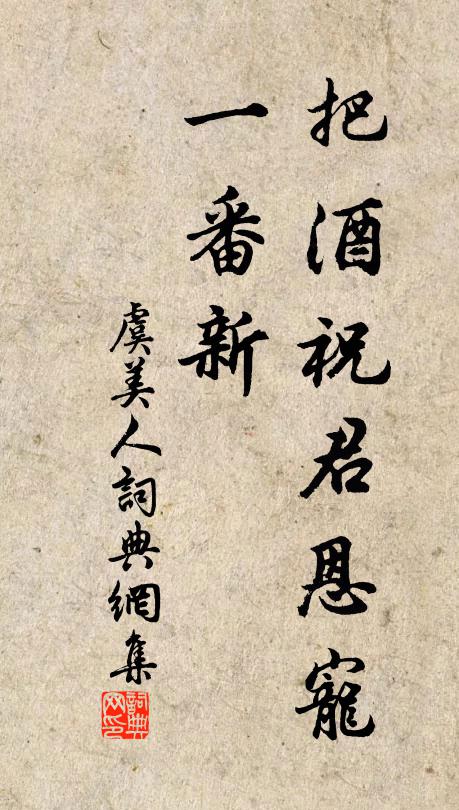 把酒祝君恩寵
一番新
虞美人詞典網集
詞典
网印